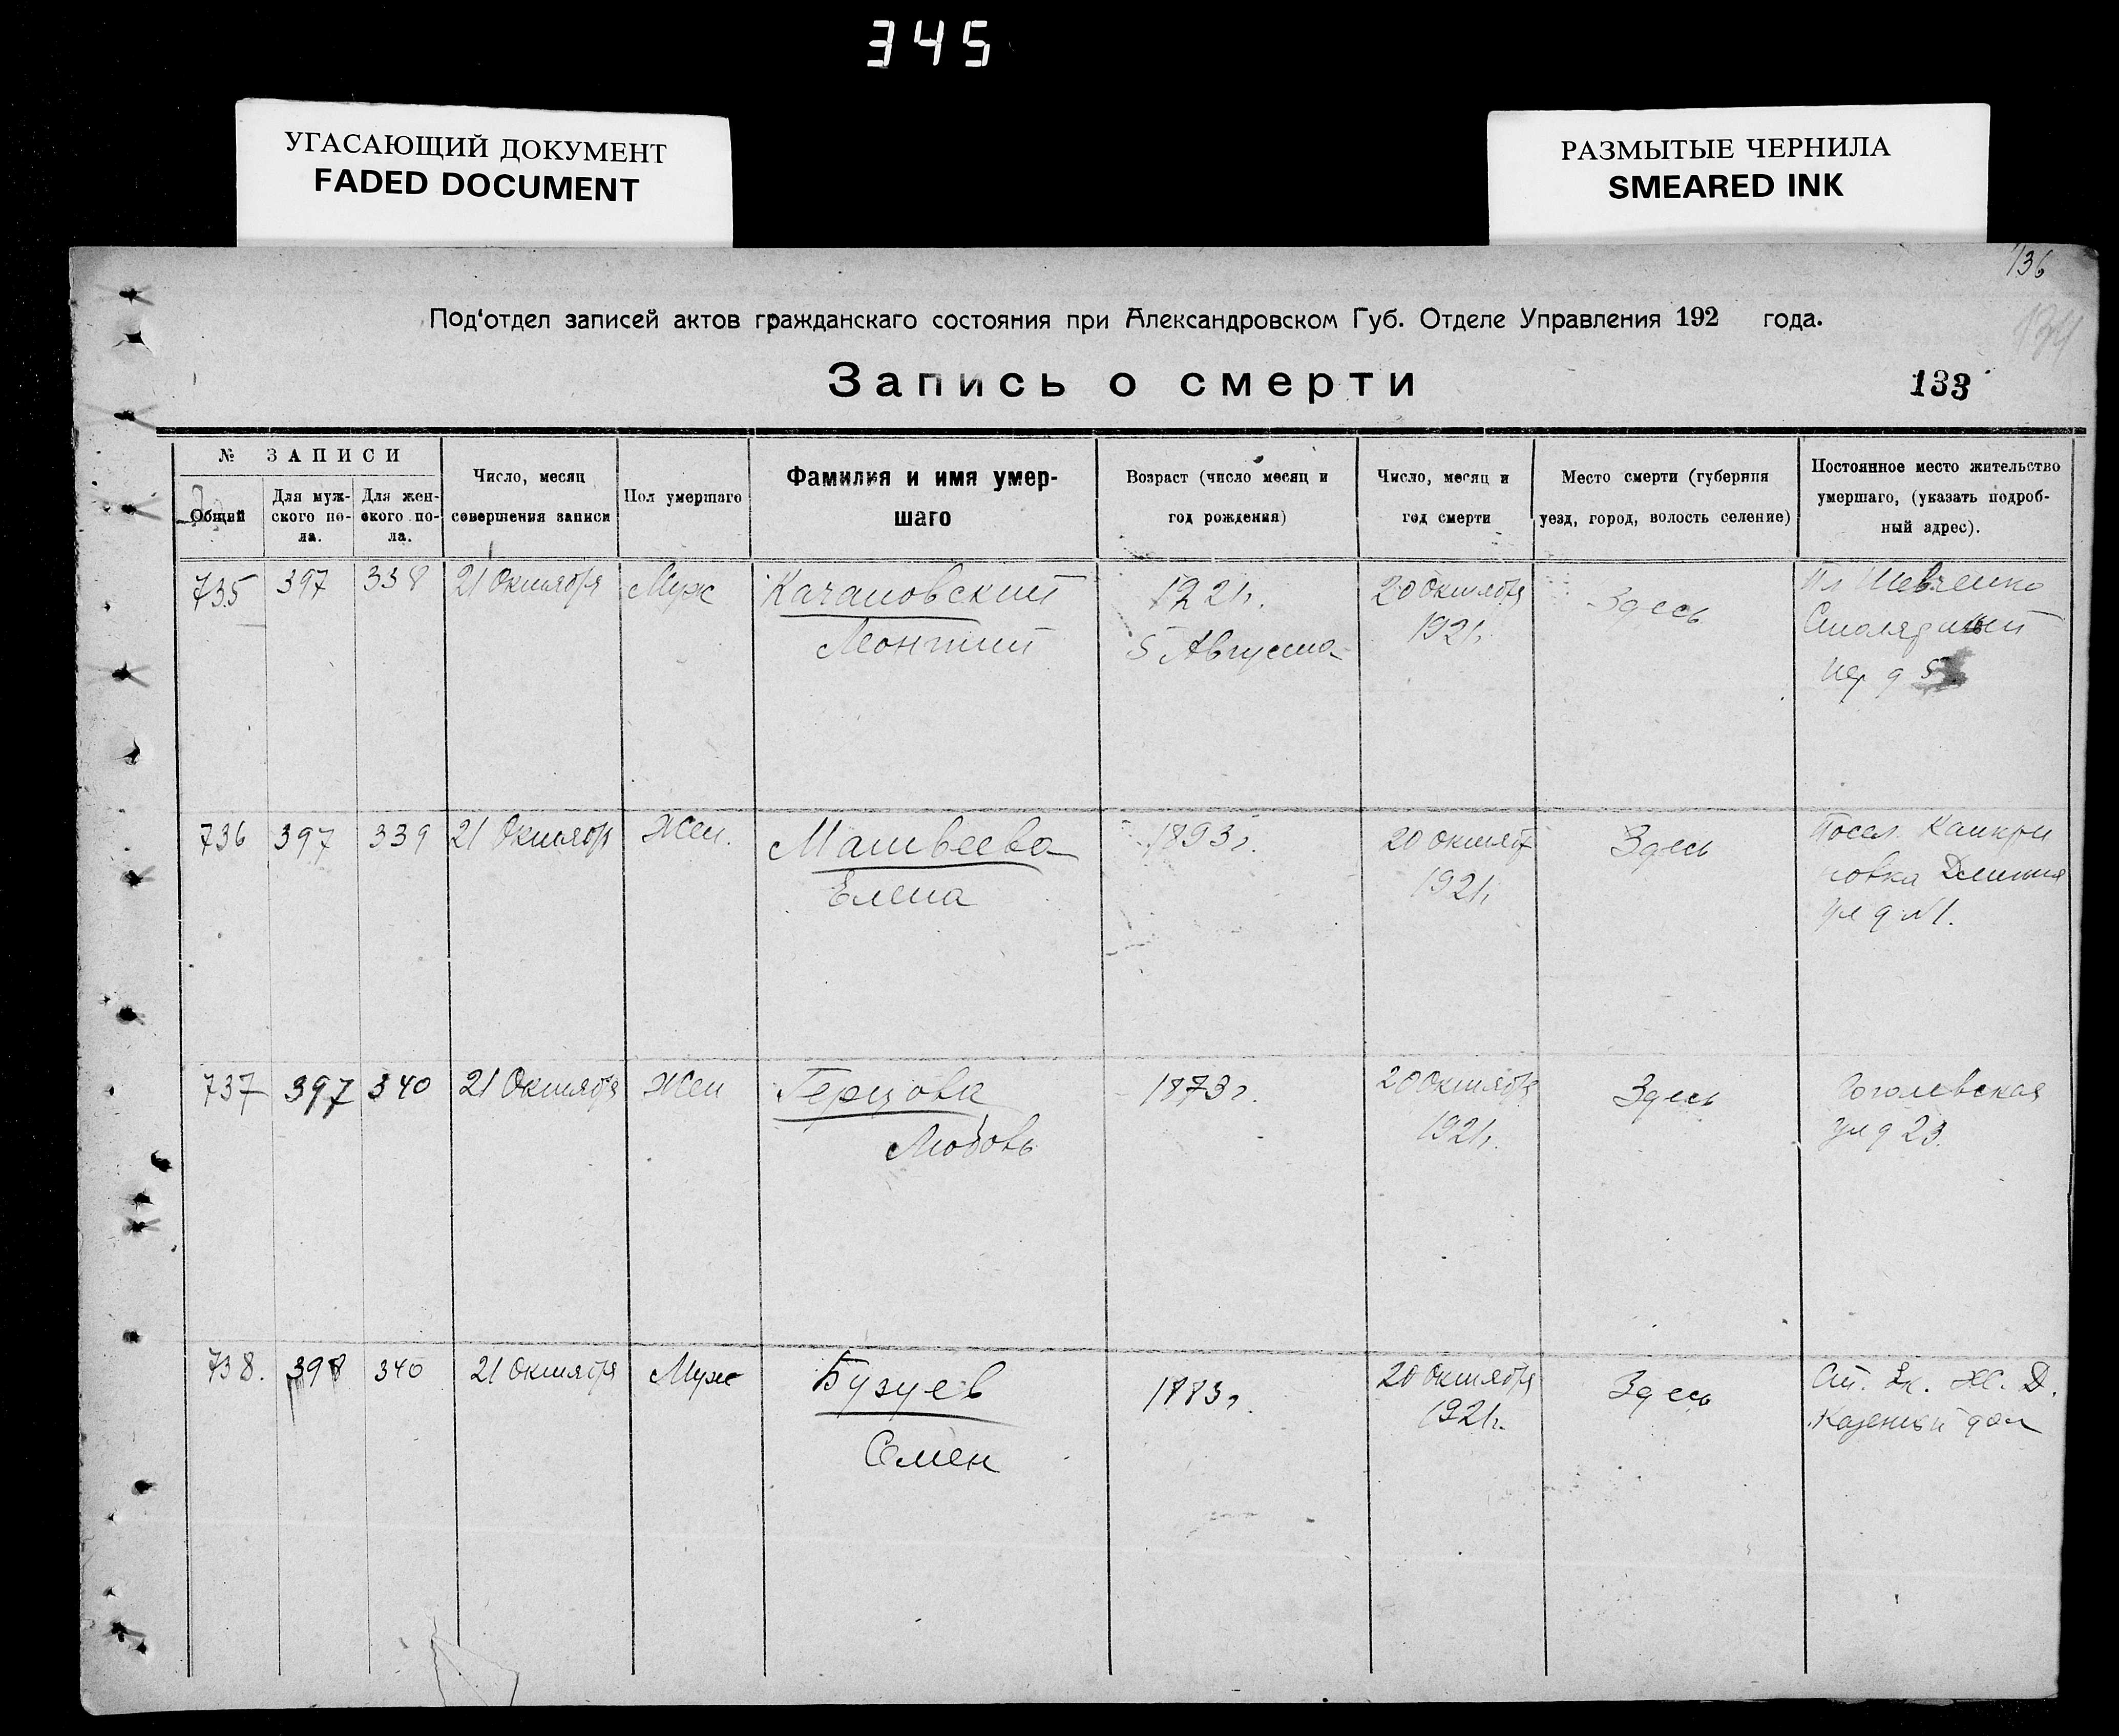 345
УГАСАЮЩИЙ ДОКУМЕНТ
FADED DOCUMENT
РАЗМЫТЫЕ ЧЕРНИЛА
SMEARED INK
136
134
Под‘отдел записей актов гражданскаго состояния при Александровском Губ. Отделе Управления 192 года.
Запись о смерти
133
№ ЗАПИСИ
Общий
Для муж-
ского по-
ла.
Для жен-
ского по-
ла.
Число, месяц
совершения записи
Пол умершаго
Фамилия и имя умер-
шаго
Возраст (число месяц и
год рождения)
Число, месяц и
год смерти
Место смерти (губерния
уезд, город, волость селение)
Постоянное место жительство
умершаго, (указать подроб-
ный адрес).
735 397 338 21 Октября Муж
Качановский
Леонтий
1921г.
5 Августа
20 октября
1921г.
Здесь
Пл Шевченко
пер д 5
736 397 339 21 Октябр Жен.
Матвеева
Елена
1893г.
20 октябр
1921г.
Здесь
Посел. Канкри
новка Длинная
ул д №1.
737 397 340 21 Октября Жен
Герцова
Любовь
1873г.
20 октября
1921г.
Здесь
Гоголевская
ул д 23.
738. 398 340 21 Октября Муж
Бузуев
Семен
1883г.
20 октября
1921г.
Здесь
Ст. Ек. Ж. Д.
Казеный дом